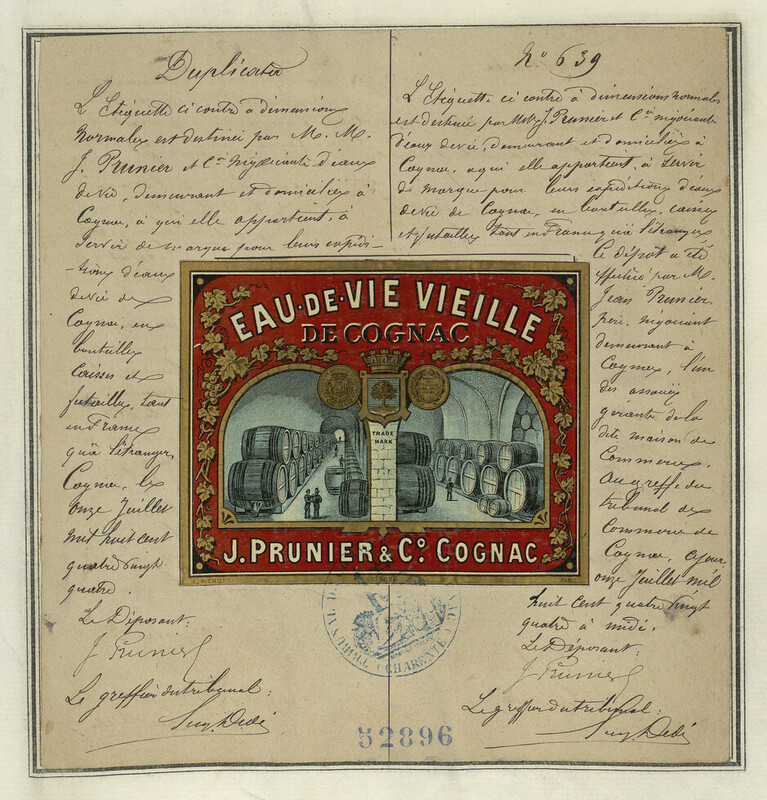 Duplicata
L'Etiquette ci contre à dimensions
normales est destinée par M. M.
J. Prunier et Cie négociants d'eaux
de vie, demeurant et domiciliés à
Cognac, à qui elle appartient, à
servir de marque pour leurs expédi-
-tions d'eaux
de vie de
Cognac, en
bouteilles
Caisses et
futailles, tant
en France
qu'à l'étranger.
Cognac, le
onze Juillet
mil huit cent
quatre vingt
quatre.
Le Déposant:
J. Prunier
Le greffier du tribunal:
No 639
L'Etiquette ci contre à dimensions normales
est destinée par MM. J. Prunier et Cie négociants
d'eaux de vie, demeurant et domiciliés à
Cognac, à qui elle appartient, à servir
de marque pour leurs expéditions d'eaux
de vie de Cognac, en bouteilles, caisses
et futailles tant en France qu'à l'étranger
Le dépôt a été
effectué par M.
Jean Prunier
père, négociant
demeurant à
Cognac, l'un
des associés
gérants de la
dite maison de
Commerce,
au greffe du
tribunal de
Commerce de
Cognac, ce jour
onze Juillet mil
huit cent quatre vingt
quatre à midi.
Le Déposant:
J. Prunier
Le greffier du tribunal:
EAU-DE-VIE VIEILLE
DE COGNAC
TRADE
MARK
J. PRUNIER & Co. COGNAC
PARIS
TRIBUNAL DE
CHARENTE
52896